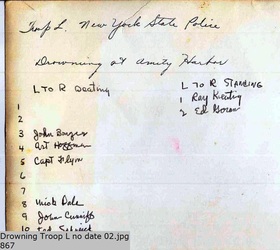 Troop L. New York State Police
Drowning at Amity Harbor
L TO R Seating
L TO R STANDING
1 Ray Keating
2 Ed Doran
1
2
3 John Borges
4 Art Hoffman
5 Capt Flynn
6
7
8 Mick Dale
9 John
10
Drowning Troop L no date 02.jpg
867